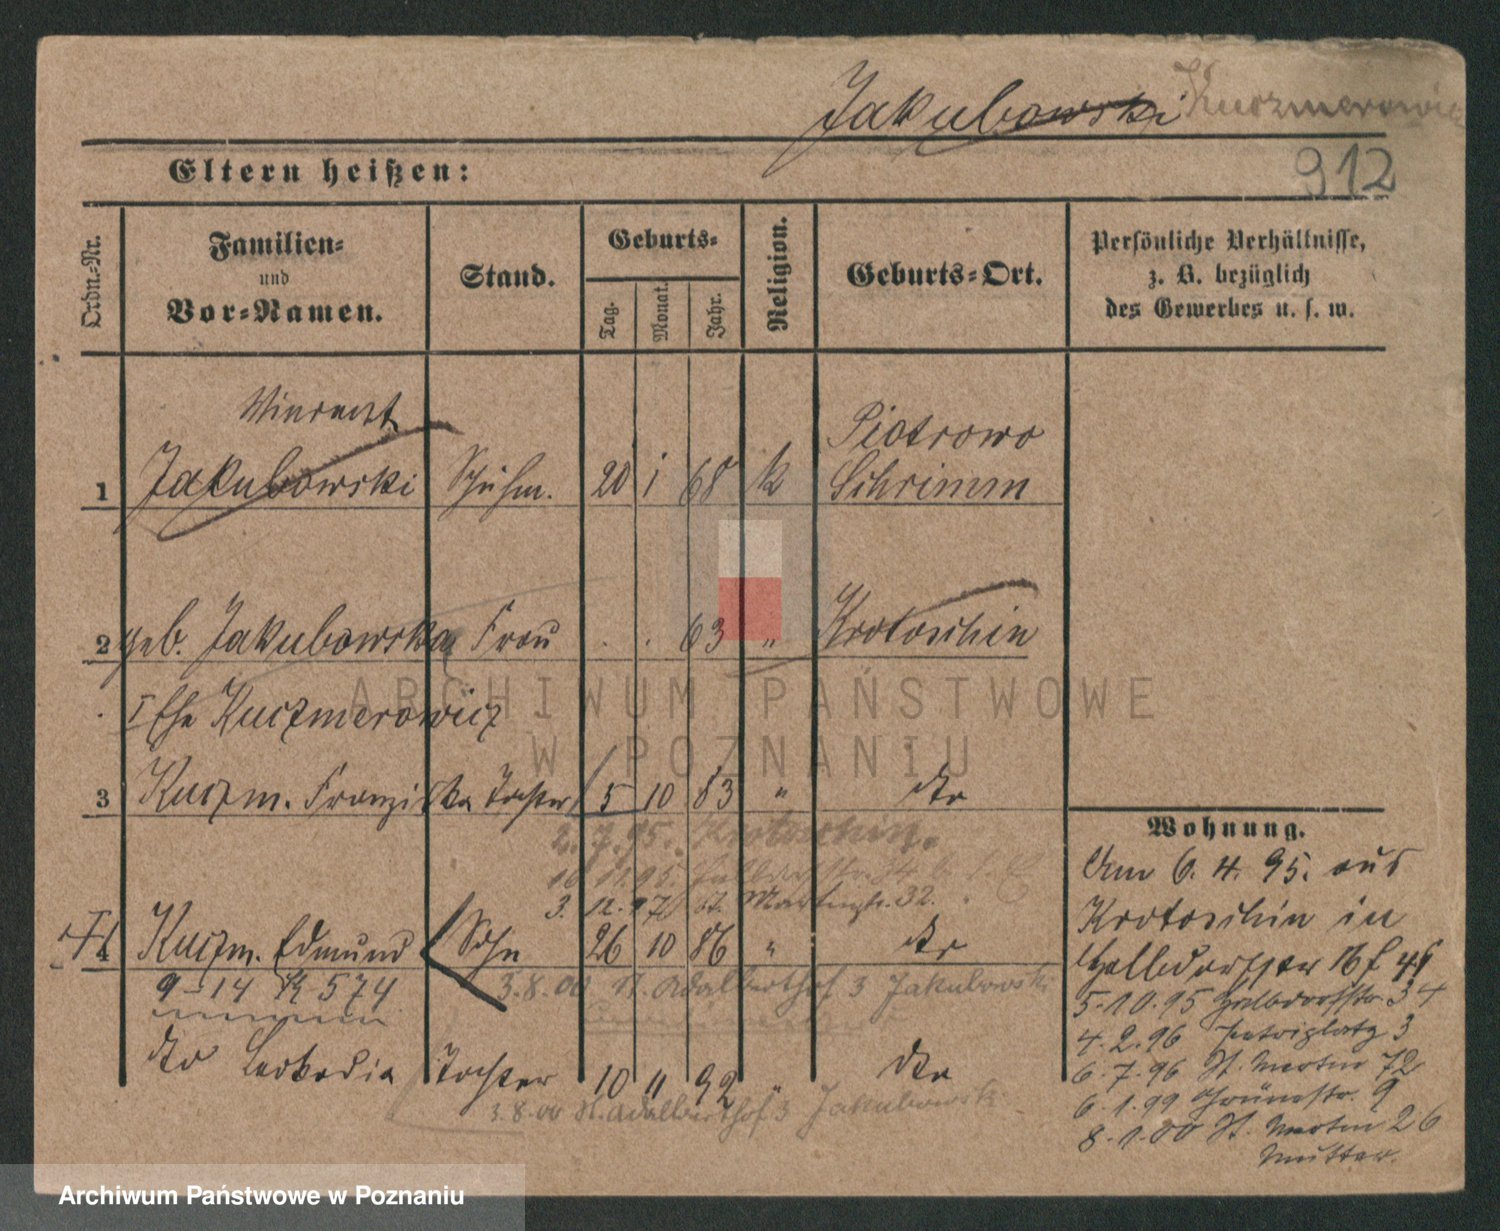 Jakubowski Kuczmerowicz
912
Eltern heißen:
Ordn.-Nr.
Familien-
und
Vor-Namen.
Stand.
Geburts-
Tag.
Monat.
Jahr.
Religion.
Geburts-Ort.
Persönliche Verhältnisse,
z. B. bezüglich
des Gewerbes u. s. w.
Vincent
Piotrowo
1 Jakubowski Schuhm. 20 1 68 k Schrimm
2 geb. Jakubowska Frau . . 63 " Krotoschin
I Ehe Kuczmerowicz
3 Kuczm. Franziska Tochter 5 10 83 " dto
2.7.95. Krotoschin.
3. 12. 97 St. Martinstr. 32.
4 Kuczm. Edmund Sohn 26 10 86 " dto
9-14 K 574
3.8.00 St. Adalberthof 3 Jakubowski
dto Leokadia Tochter 10 11 92 " dto
3.8.00 St. Adalberthof 3 Jakubowski
Wohnung.
Am 6. 4. 95. aus
Krotoschin in
Halbdorfstr
5.10.95 Halbdorfstr. 34
4.2.96 Petriplatz 3
6.7.96 St. Martin 72
6.1.99 Grünestr. 9
8.1.00 St. Martin 26
Mutter.
ARCHIWUM PAŃSTWOWE
W POZNANIU
Archiwum Państwowe w Poznaniu